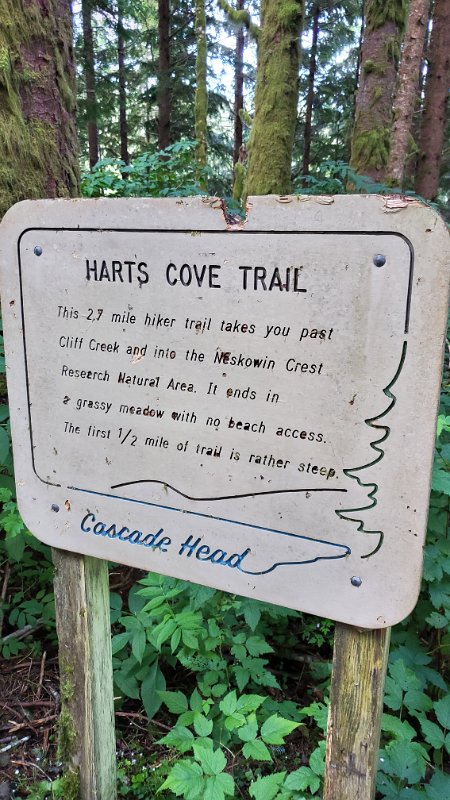 HARTS COVE TRAIL
This 2.7 mile hiker trail takes you past
Cliff Creek and into the Neskowin Crest
Research Natural Area. It ends in
a grassy meadow with no beach access.
The first 1/2 mile of trail is rather steep.
Cascade Head